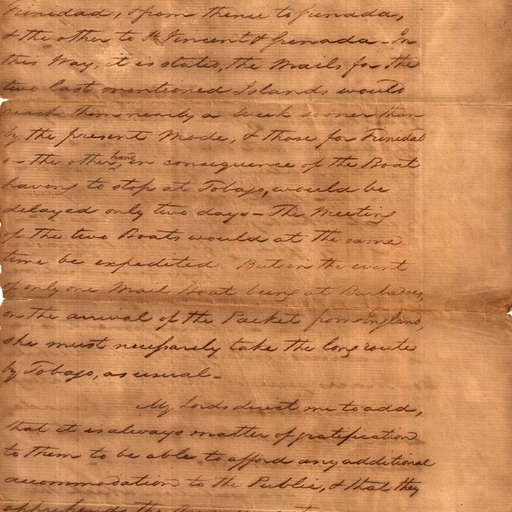 Trinidad, & from thence to Grenada,
& the other to St Vincent & Grenada. In
this Way, it is stated, the Mails for the
two last mentioned Islands would
reach them nearly a Week sooner than
by the present Mode, & those for Trinidad
on the other hand, in consequence of the Boat
having to stop at Tobago, would be
delayed only two days – The Meeting
of the two Boats would at the same
time be expedited. But in the event
of only one Mail Boat being at Barbadoes,
on the arrival of the Packet from England,
she must necessarily take the long route
by Tobago, as usual –
My Lords direct me to add,
that it is always matter of gratification
to them to be able to afford any additional
accommodation to the Public, & that they
apprehend the